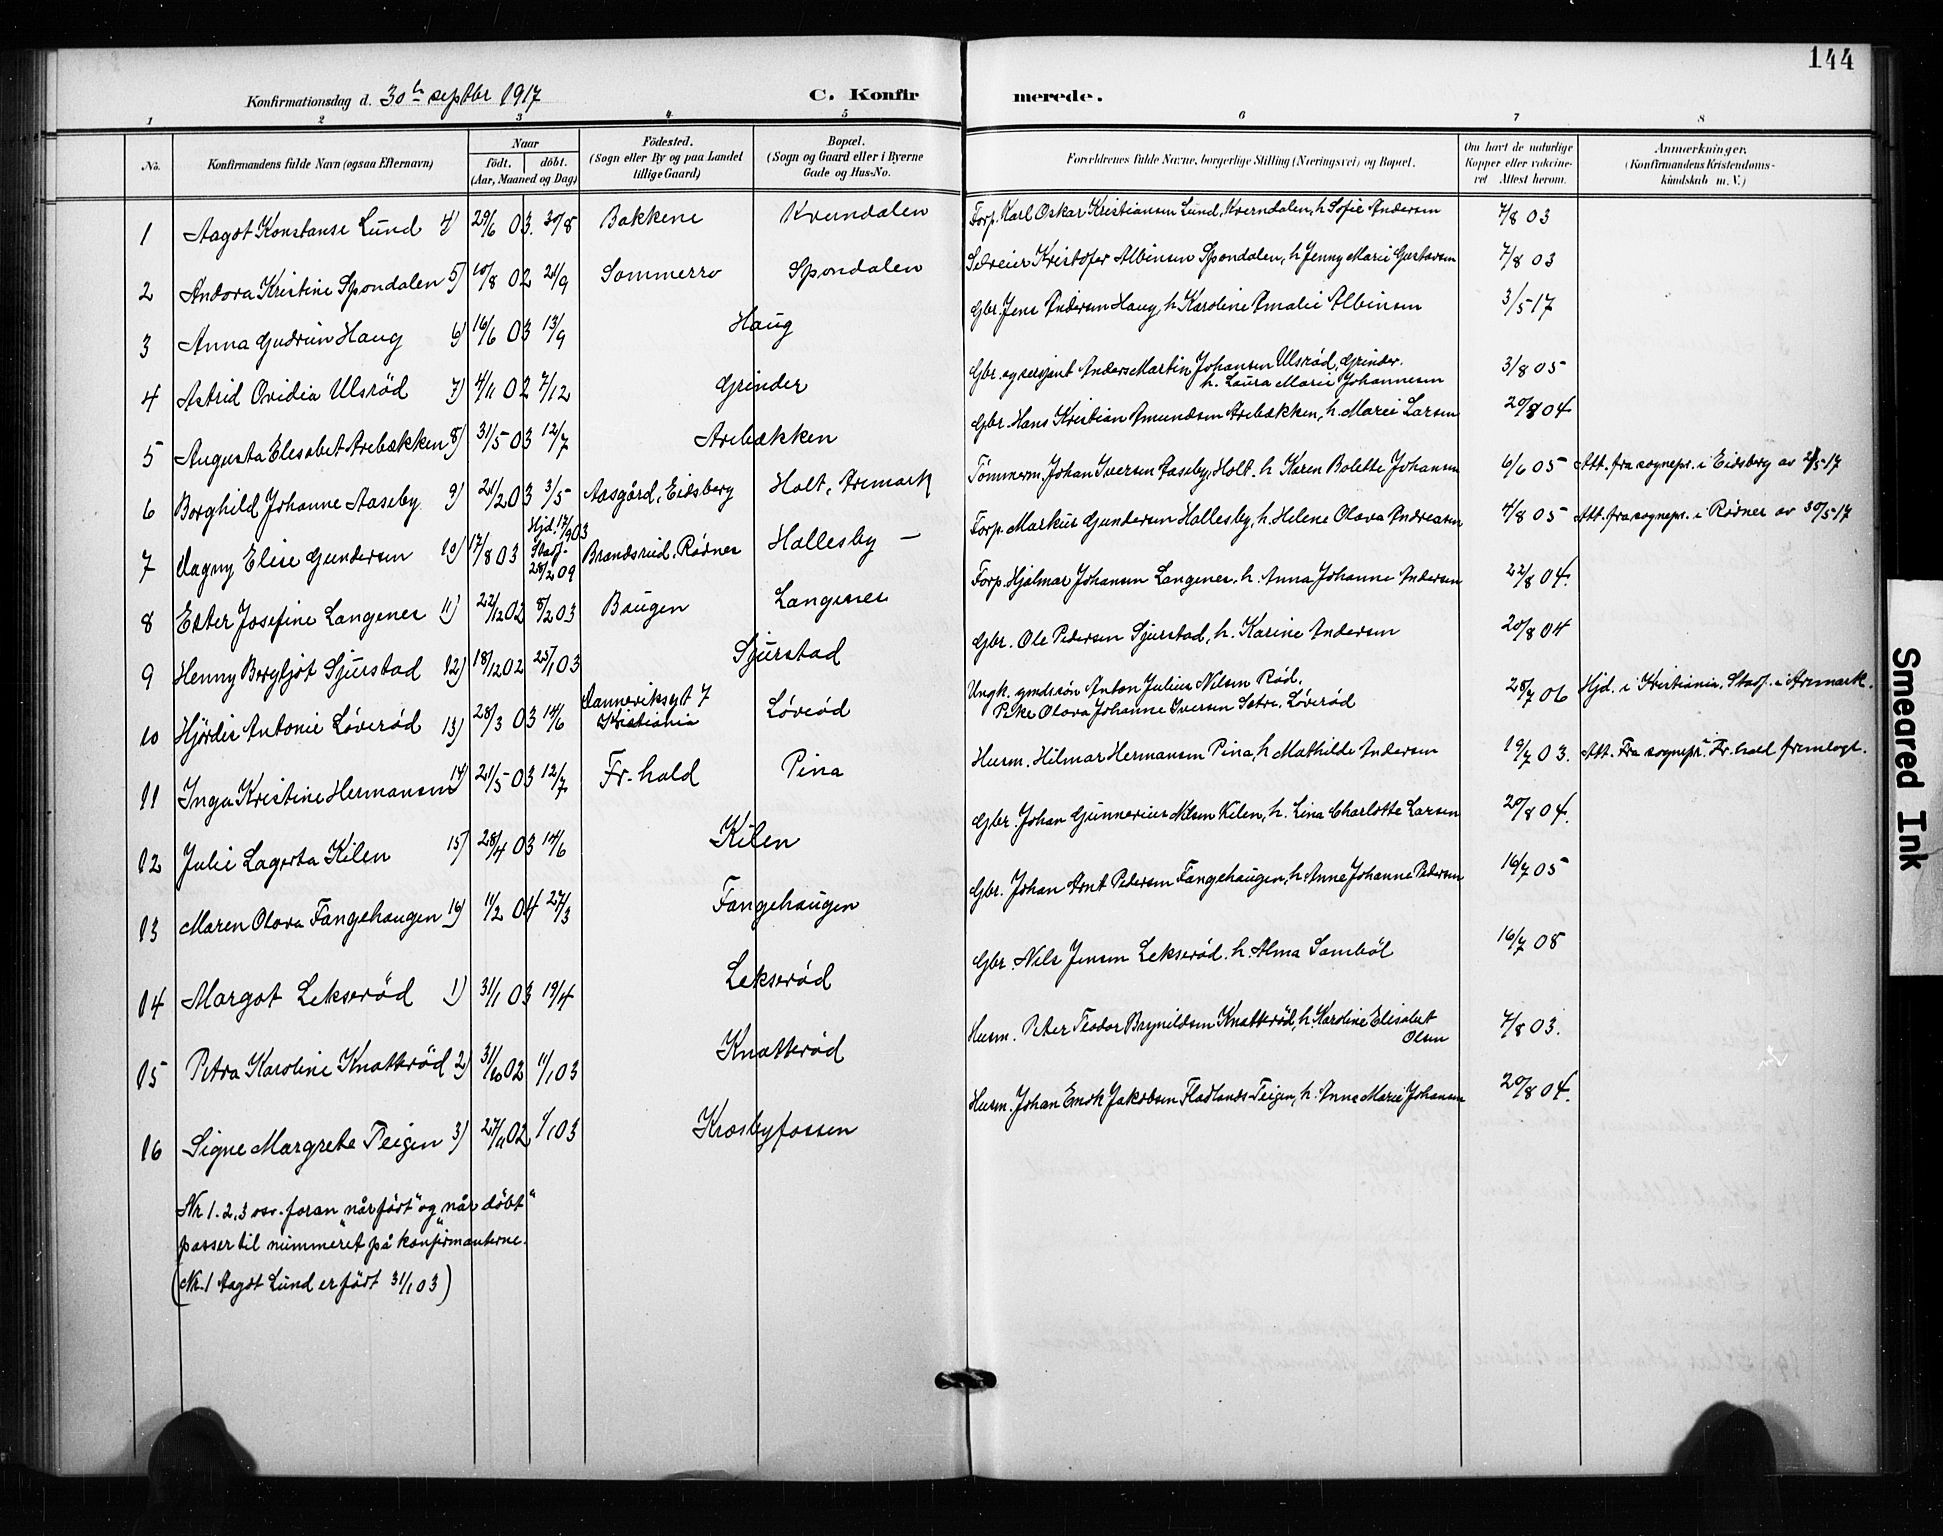 144
Konfirmationsdag d. 30te septbr 1917
C. Konfirmerede.
1 2 3 4 5 6 7 8
No.
Konfirmandens fulde Navn (ogsaa Efternavn)
Naar
födt. döbt.
(Aar, Maaned og Dag)
Födested.
(Sogn eller By og paa Landet
tillige Gaard)
Bopæl.
(Sogn og Gaard eller i Byerne
Gade og Hus-No.
Forældrenes fulde Navne, borgerlige Stilling (Næringsvei) og Bopæl.
Om havt de naturlige
Kopper eller vakcine-
ret Attest herom.
Anmærkninger,
(Konfirmandens Kristendoms-
kundskab m. V.)
1 Aagot Konstanse Lund 4) 29/6 03. 30/8 Bakkene Kverndalen Forp. Karl Oskar Kristiansen Lund, Kverndalen, h Sofie Andersen 7/8 03
2 Andora Kristine Spondalen 5) 10/8 02 21/9 Sommerro Spondalen Selveier Kristofer Albinsen Spondalen, h Jenny Marie Gustavsen 7/8 03
3 Anna Gudrun Haug 6) 16/6 03 13/9 Haug Gbr. Jens Andersen Haug, h Karoline Amalie Albinsen 3/5 17
4 Astrid Ovidia Ulsröd 7) 4/11 02 7/12 Grinder Gbr. og sersjant Anders Martin Johansen Ulsröd, Grinder.
h. Laura Marie Johannesen 3/8 05
5 Augusta Elisabet Arebækken 8) 31/5 03 12/7 Arebækken Gbr. Hans Kristian Amundsen Arebækken, h. Marie Larsen 20/8 04
6 Borghild Johanne Aaseby 9) 21/2 03 3/5 Aasgård, Eidsberg Holt, Aremark Tömmerm. Johan Iversen Aaseby, Holt. h Karen Bolette Johansen 6/6 05 Att. fra sognepr. i Eidsberg av 2/5-17
7 Dagny Elise Gundersen 10) 17/8 03 Hjd. 17/9 03
Stadf.
28/2 09 Brandsrud, Rödnes Hallesby — Forp. Markus Gundersen Hallesby, h. Helene Olava Andreasen 4/8 05 Att. fra sognepr. i Rödnes av 30/5-17
8 Ester Josefine Langenes 11) 22/12 02 8/2 03 Baugen Langenes Forp. Hjalmar Johansen Langenes. h. Anna Johanne Andersen 22/8 04.
9 Henny Bergljot Sjurstad 12) 18/12 02 25/1 03 Sjurstad Gbr. Ole Pedersen Sjurstad, h. Karine Andersen 20/8 04
10 Hjördis Antonie Löveröd 13) 28/3 03 14/6 Danneriksgt 7
Kristiania Löveröd Ungk. gmdssön Anton Julius Nilsen Röd.
Pike Olava Johanne Iversen Sætre. Löveröd 28/7 06 Hjd. i Kristiania. Stadf. i Aremark.
11 Inga Kristine Hermansen 14) 21/5 03 12/7 Fr. hald Pina Husm. Hilmar Hermansen Pina, h Mathilde Andersen 19/7 03. Att. Fra sognepr. i Fr. hald fremlagt.
12 Julie Lagerta Kilen 15) 28/4 03 14/6 Kilen Gbr. Johan Gunnerius Nilsen Kilen, h. Lina Charlotte Larsen 20/8 04.
13 Maren Olava Fangehaugen 16) 11/2 04 27/3 Fangehaugen Gbr. Johan Arnt Pedersen Fangehaugen, h Anne Johanne Pedersen 16/7 05
14 Margot Lekseröd 1) 31/1 03 19/4 Lekseröd Gbr. Nils Jensen Lekseröd. h. Alma Samböl 16/7 08
15 Petra Karoline Knatteröd 2) 31/10 02 11/1 03 Knatteröd Husm. Peter Teodor Brynildsen Knatteröd, h. Karoline Elisabet
Olsen 7/8 03.
16 Signe Margrete Teigen 3) 27/11 02 1/1 03 Krosbyfossen Husm. Johan Emok Jakobsen Fladlands-Teigen, h. Anne Marie Johansen 20/8 04.
Nr. 1. 2, 3 osv. foran "når födt" og "når döbt"
passer til nummeret på konfirmanterne.
(Nr. 1 Aagot Lund er födt 31/1 03)
Smeared Ink